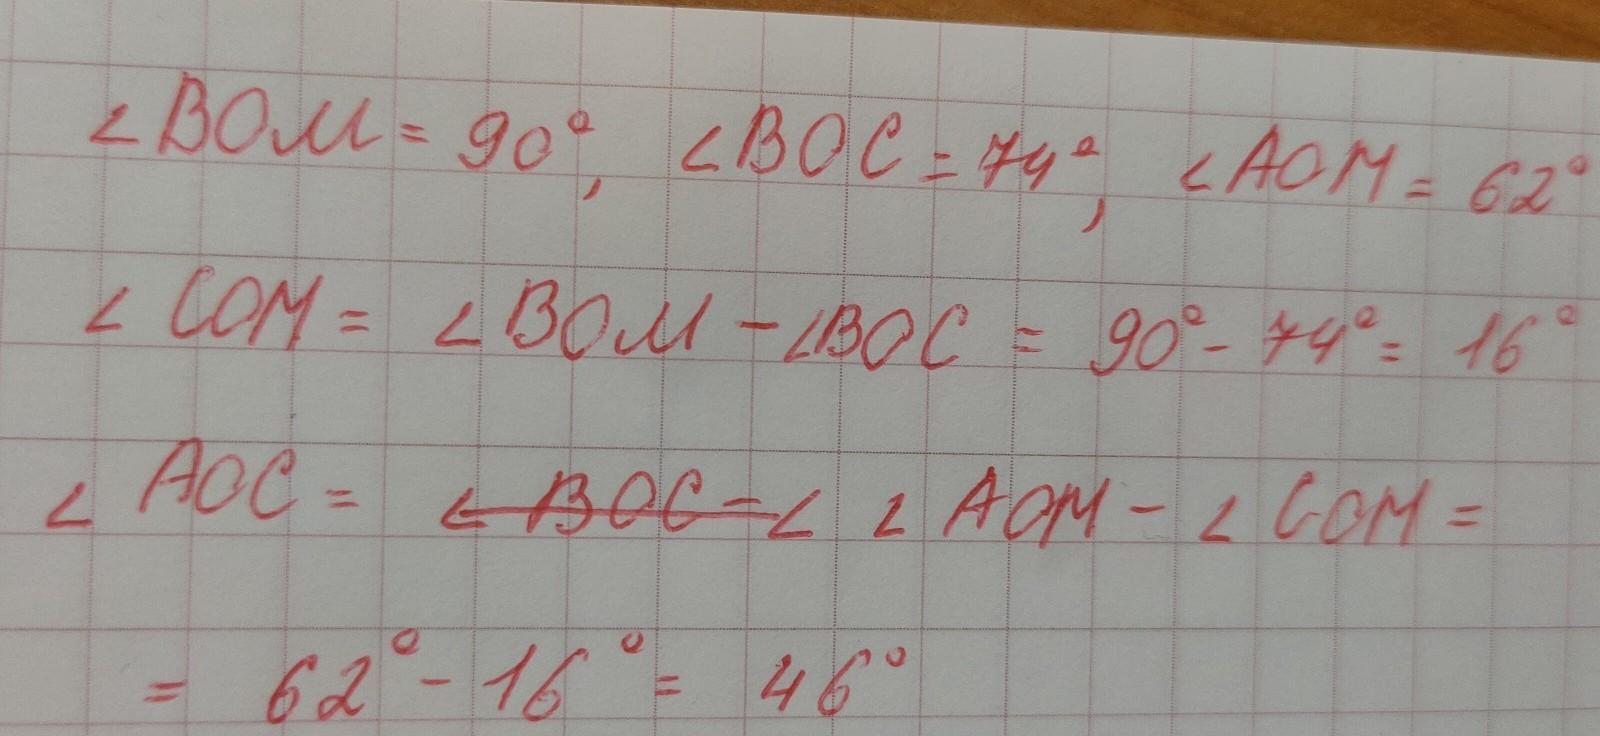 ∠BOM = 90°, ∠BOC = 74°, ∠AOM = 62°
∠COM = ∠BOM - ∠BOC = 90° - 74° = 16°
∠AOC = ∠BOC - ∠ ∠AOM - ∠COM =
= 62° - 16° = 46°